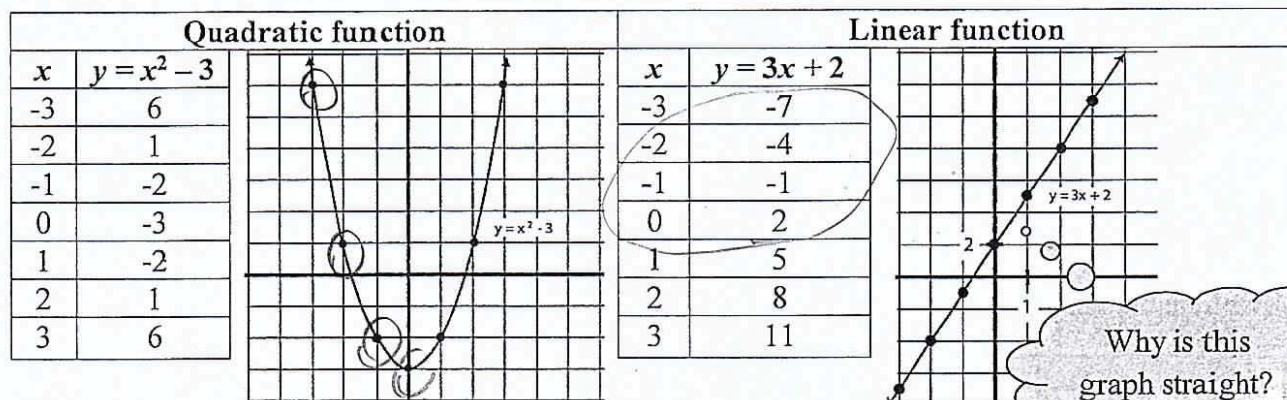 Quadratic function
x y = x² – 3
-3 6
-2 1
-1 -2
0 -3
1 -2
2 1
3 6
y = x² - 3
Linear function
x y = 3x + 2
-3 -7
-2 -4
-1 -1
0 2
1 5
2 8
3 11
y = 3x + 2
2
1
Why is this
graph straight?